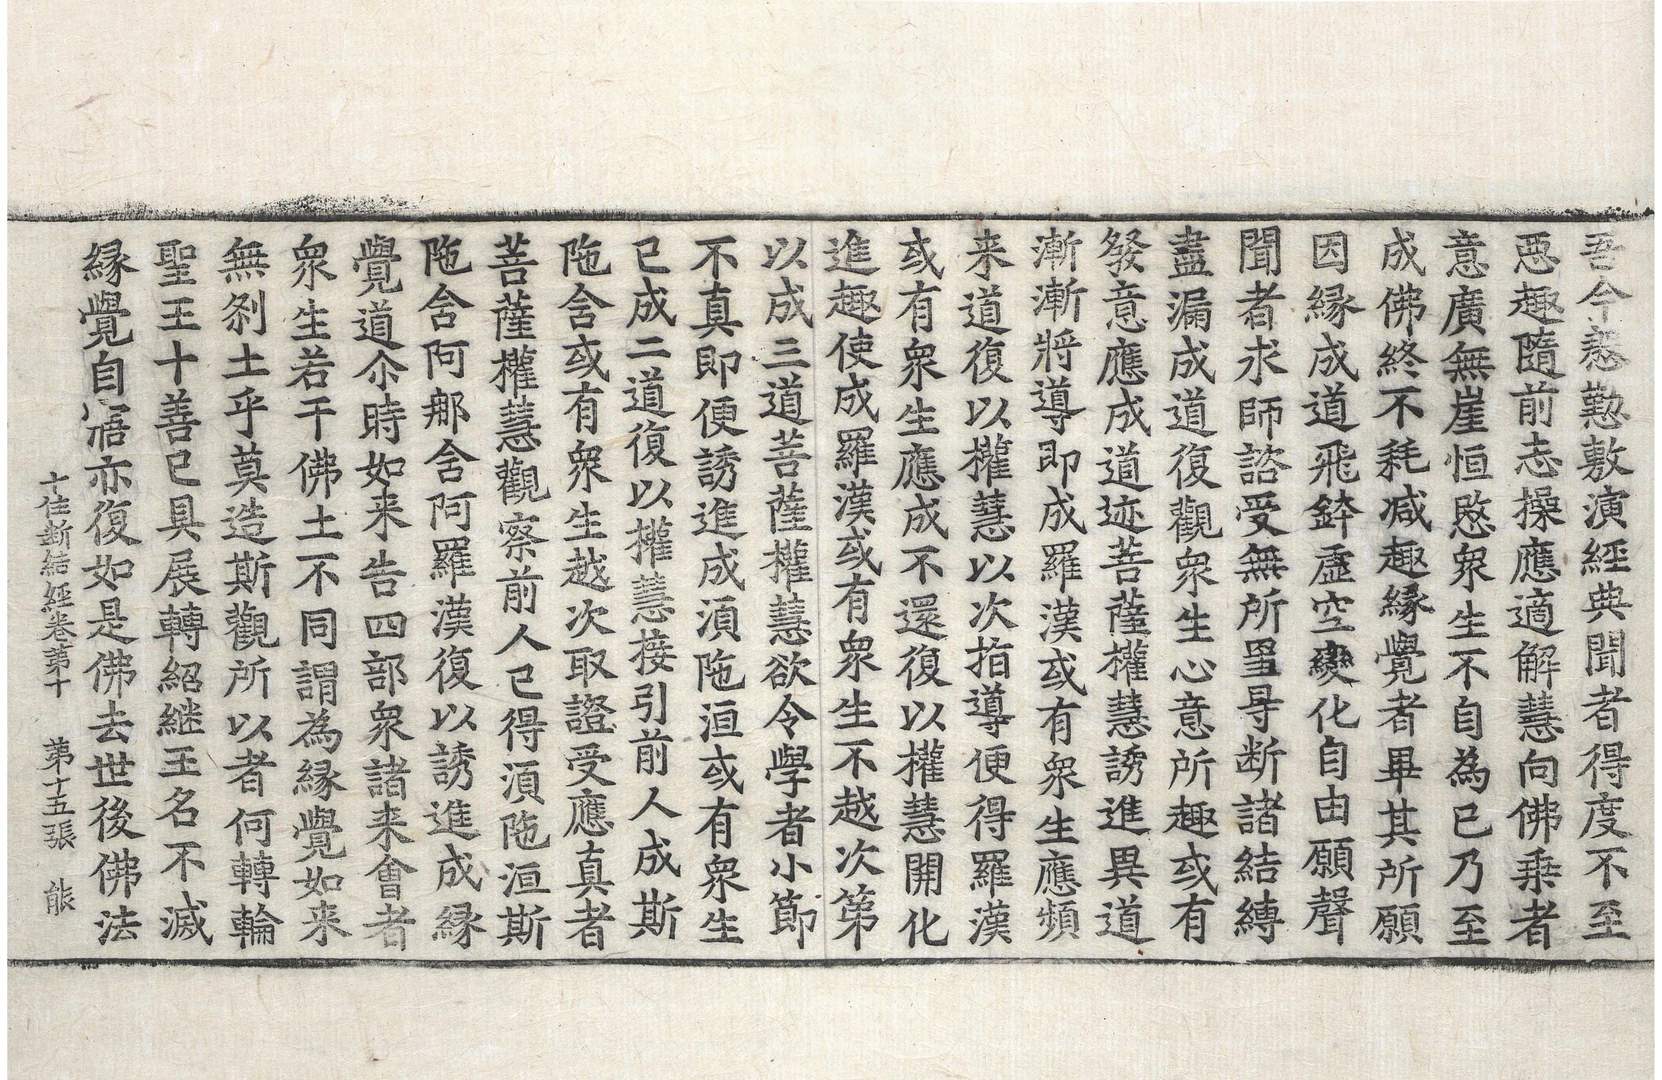 吾今慇懃敷演經典聞者得度不至
惡趣隨前志操應適解慧向佛乗者
意廣無崖恒愍衆生不自為已乃至
成佛終不耗減趣縁覺者畢其所願
因縁成道飛鉢虛空變化自由願聲
聞者求師諮受無所罣㝵断諸結縛
盡漏成道復觀衆生心意所趣或有
發意應成道迹菩薩權慧誘進異道
漸漸將導即成羅漢或有衆生應頻
来道復以權慧以次指導便得羅漢
或有衆生應成不還復以權慧開化
進趣使成羅漢或有衆生不越次第
以成三道菩薩權慧欲令學者小節
不真即便誘進成湏陁洹或有衆生
已成二道復以權慧接引前人成斯
陁含或有衆生越次取證受應真者
菩薩權慧觀察前人已得湏陁洹斯
陁含阿那含阿羅漢復以誘進成縁
覺道尒時如来告四部衆諸来會者
衆生若干佛土不同謂為縁覺如来
無刹土乎莫造斯觀所以者何轉輪
聖王十善已具展轉紹継王名不滅
縁覺自寤亦復如是佛去世後佛法
十住斷結經卷第十 第十五張 能